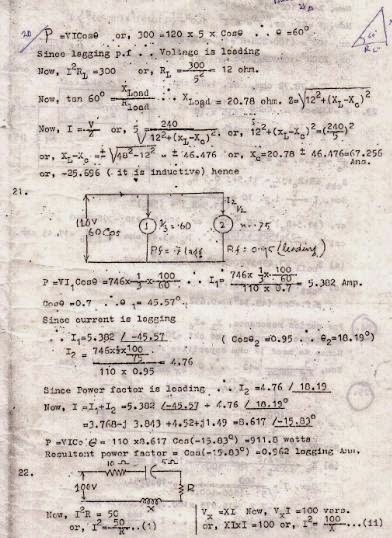 20 P =VICosθ or, 300=120 x 5 x Cosθ .. θ =60°
Since lagging p.f .. Voltage is leading
Now, I²R_L =300 or, R_L = 300/5² = 12 ohm.
Now, tan 60° = X_Load/R_load .. X_Load = 20.78 ohm. Z=√12²+(X_L-X_c)²
Now, I = V/Z or, 5 = 240/√12²+(X_L-X_c)² or, 12²+(X_L-X_c)²=(240/5)²
or, X_L-X_c = ±√48²-12² = ± 46.476 or, X_c=20.78 ± 46.476=67.256 Ans.
or, -25.696 ( it is inductive) hence
21.
110V
60 Cps
1
1/3 = .60
Pf = .7 (lag)
I₂
2
1/2
n = .75
Pf = 0.95 (leading)
P =VI₁Cosθ =746x 1/3 x 100/60 .. I₁= 746x 1/3 x 100/60 / 110 x 0.7 = 5.382 Amp.
Cosθ =0.7 .. θ₁= 45.57°
Since current is lagging
.. I₁=5.382 /-45.57 ( Cosθ₂ =0.95 .. θ₂=18.19°)
I₂ = 746x½x 100/75 / 110 x 0.95 = 4.76
Since Power factor is leading .. I₂ =4.76 / 18.19
Now, I =I₁+I₂ =5.382 /-45.57 + 4.76 / 18.19°
=3.768-j 3.843 +4.52+j1.49 =8.617 /-15.83°
P =VICosθ = 110 x8.617 Cos(-15.83°) =911.8 watts
Resultent power factor = Cos(-15.83°) =0.962 lagging Ans.
22.
10 Ω
5 Ω
100V
R
X
Now, I²R = 50 V_X =XI Now, V_XI =100 vars.
or, I²= 50/R ..(i) or, XIxI =100 or, I²= 100/X ...(ii)